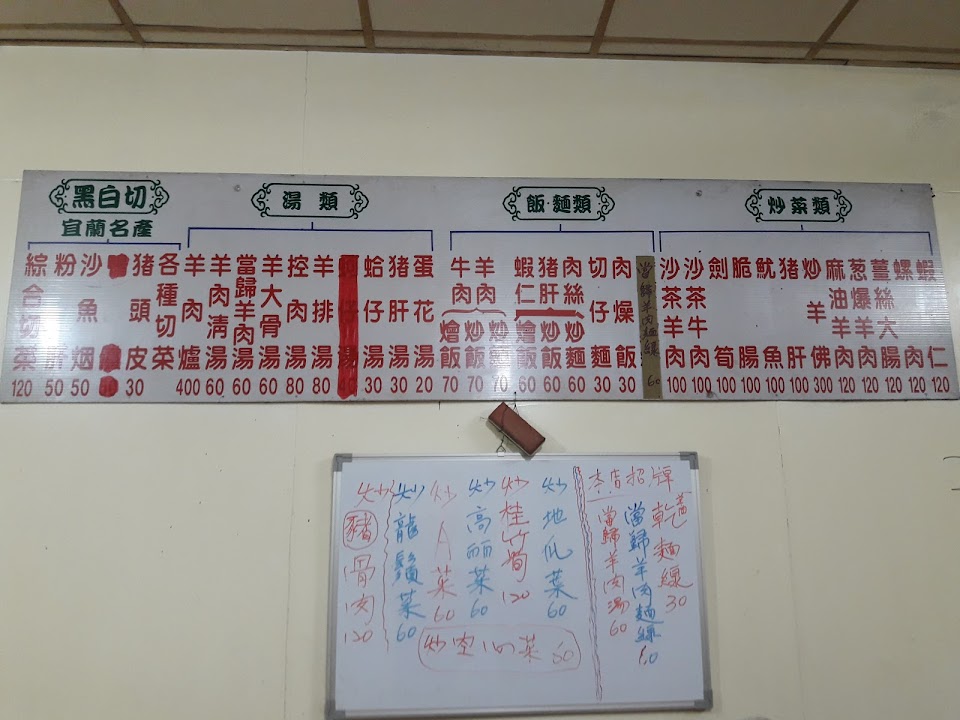 黑白切
宜蘭名產
綜合切菜 120
粉肝 50
沙魚烟 50
豬頭皮 30
各種切菜
湯類
羊肉爐 400
羊肉清湯 60
當歸羊肉湯 60
羊大骨湯 60
控肉湯 80
羊排湯 80
蛤仔湯 30
豬肝湯 30
蛋花湯 20
飯·麵類
牛肉 羊肉
燴飯 70
炒飯 70
炒麵 70
蝦仁 豬肝 肉絲
燴飯 60
炒飯 60
炒麵 60
切仔麵 30
肉燥飯 30
當歸羊肉麵線 60
炒菜類
沙茶羊肉 100
沙茶牛肉 100
劍筍 100
脆腸 100
魷魚 100
豬肝 100
炒羊佛 300
麻油羊肉 120
葱爆羊肉 120
薑絲大腸 120
螺肉 120
蝦仁 120
炒豬骨肉 120
炒龍鬚菜 60
炒A菜 60
炒高丽菜 60
炒桂竹筍 120
炒地瓜菜 60
炒空心菜 60
本店招牌
當歸羊肉湯 60
當歸羊肉麵線
乾麵線 30